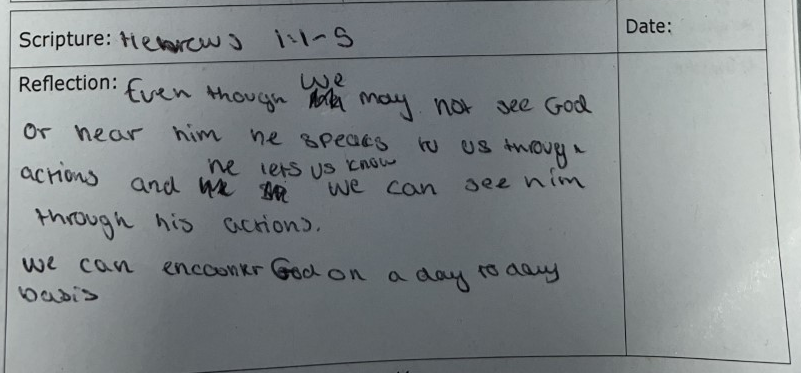 Scripture: Hebrews 1:1-5
Date:
Reflection: Even though we may not see God
or hear him he speaks to us through
actions and he lets us know we can see him
through his actions.
we can encounter God on a day to day
basis